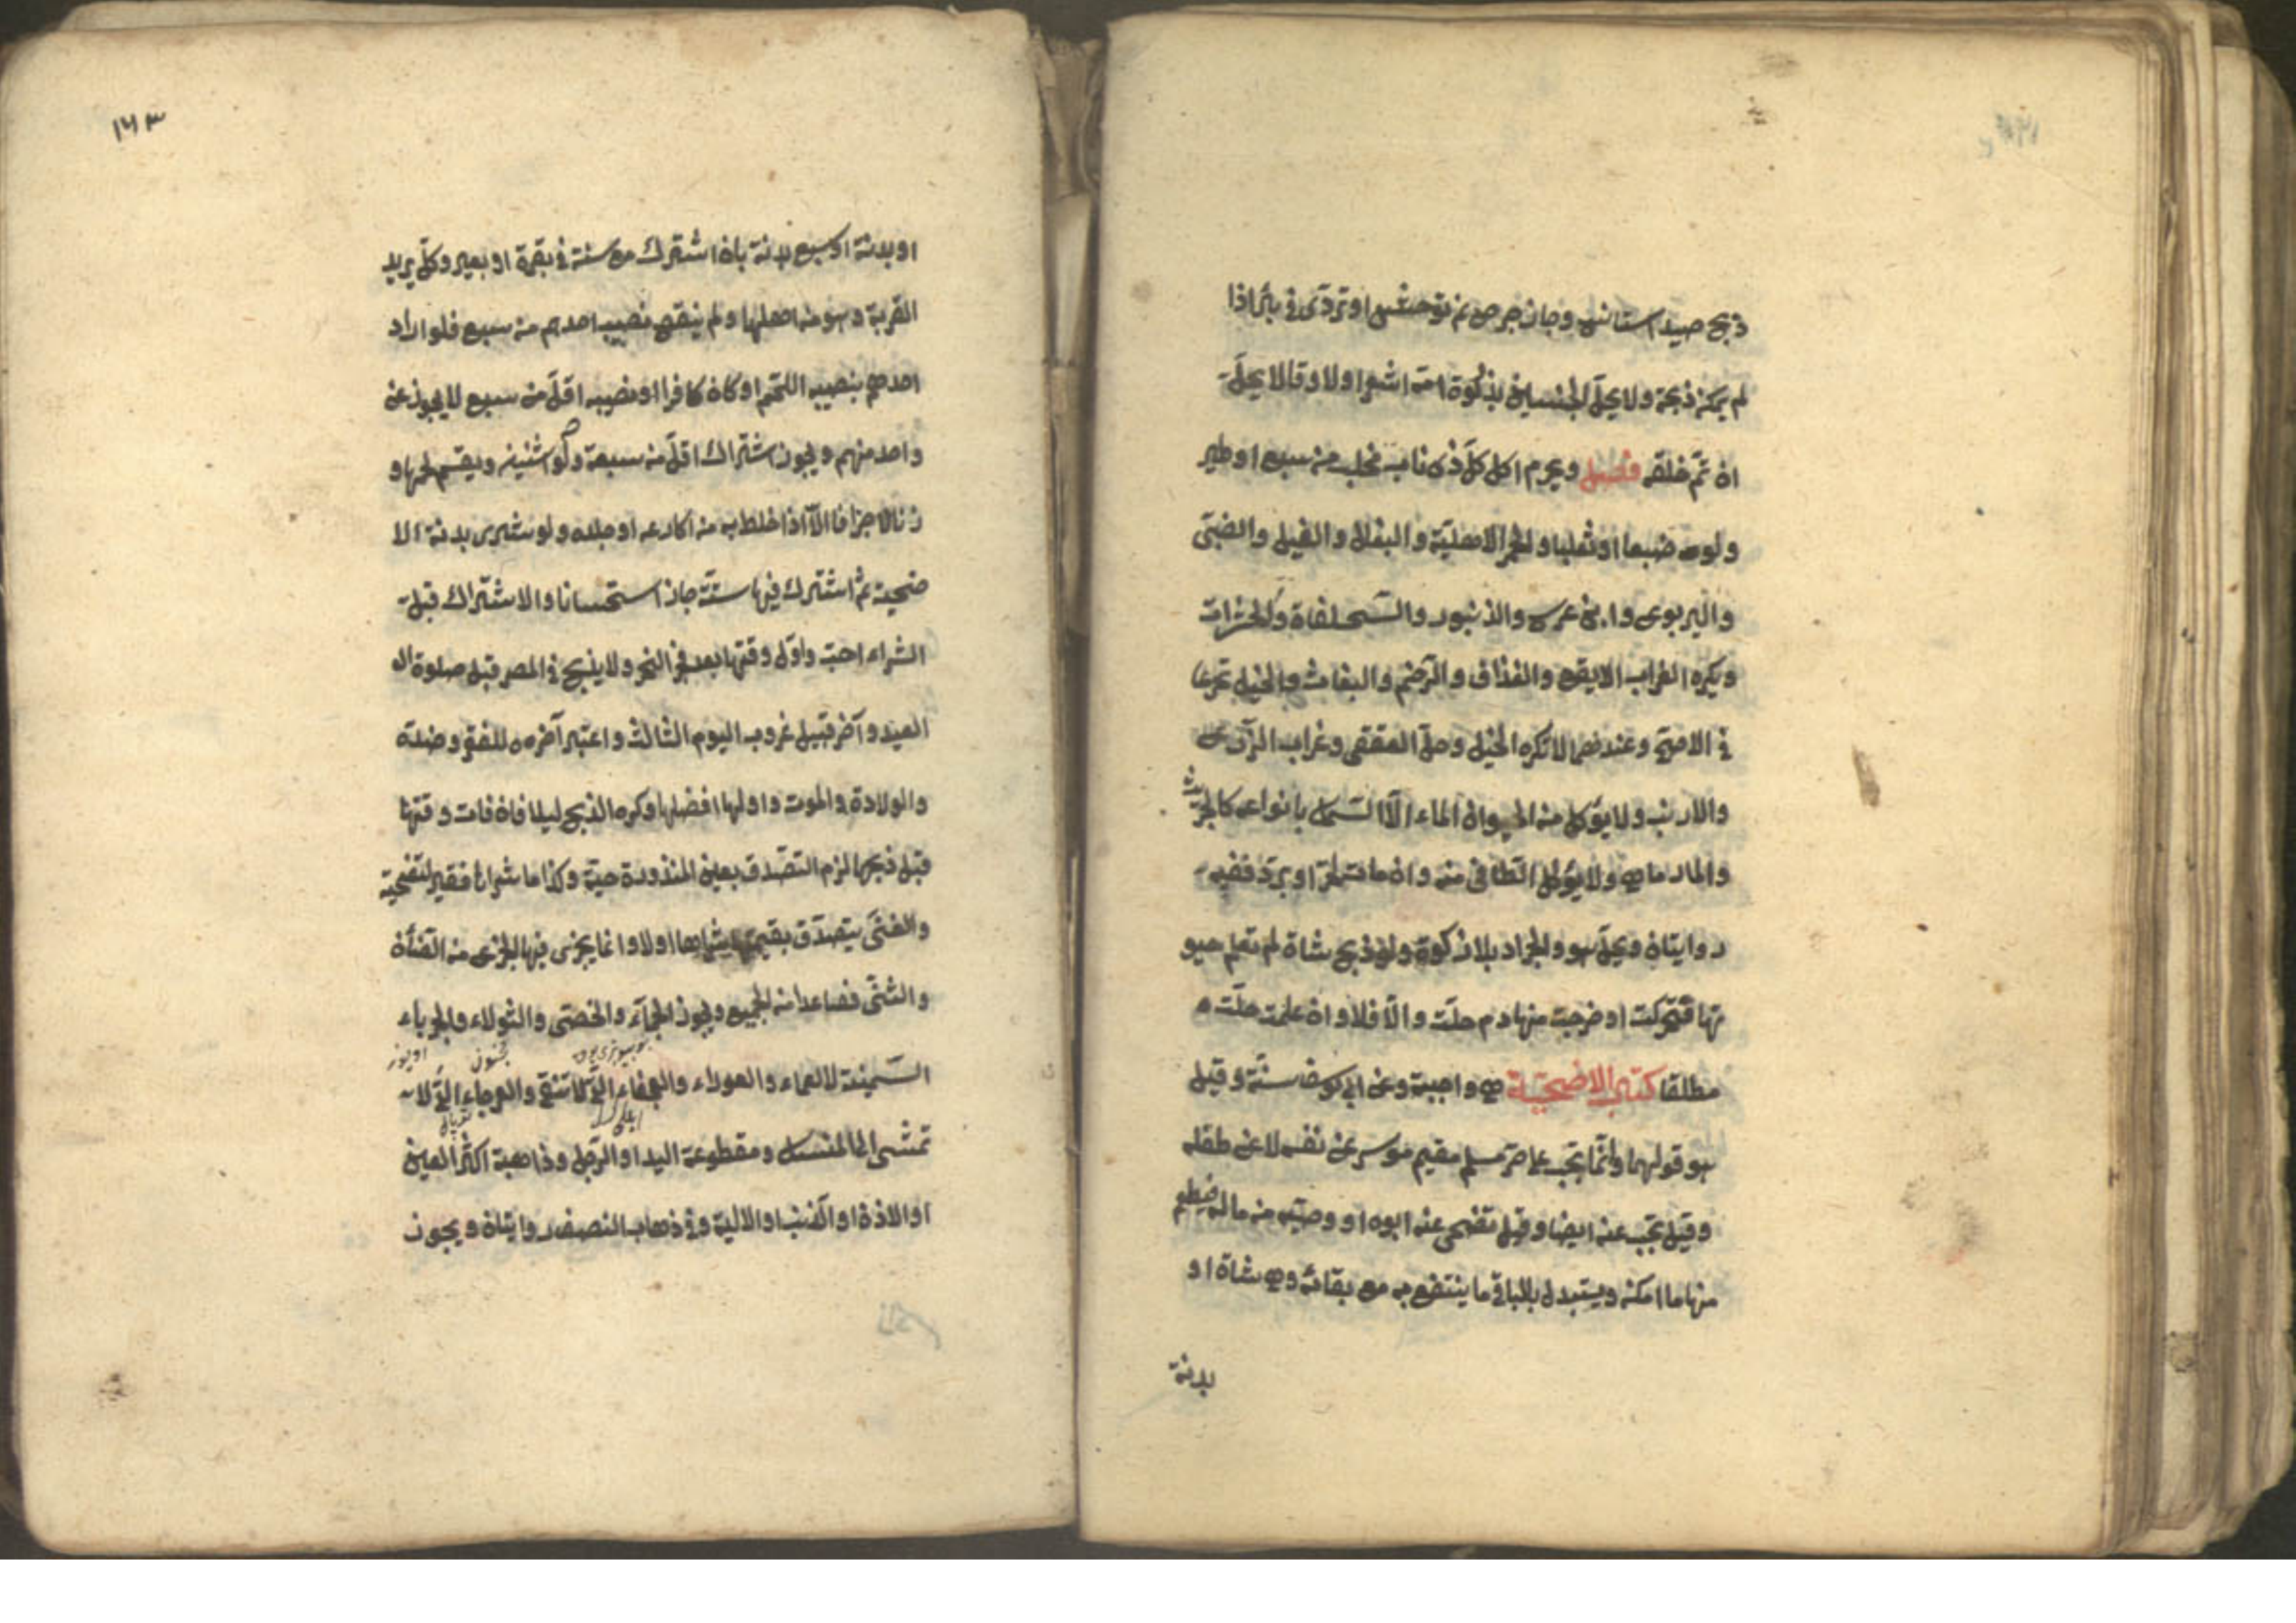 ذبح صيد استانس وجاز جرح نعم توحش او تردى في بئر اذا
لم يمكن ذبحه ولا يحل الجنين بذكوة امه اشعر اولا وقالا يحل
ان تم خلقه فصل ويحرم اكل كل ذى ناب او مخلب من سبع او طير
ولو ضبعا او ثعلبا والحمر الاهلية والبغال والفيل والضب
واليربوع وابن عرس والزنبور والسحلفاة والحشرات
ويكره الغراب الابقع والغذاف والرخم والبغاث والخيل تحريما
في الاصح وعندهما لا تكره الخيل وحل العقعق وغراب الزرع
والارنب ولا يؤكل من الحيوان الماء الا السمك بانواعه كالجريث
والمارماهي ولا يؤكل الطافى منه وان مات لحر او برد ففيه
روايتان ويحل هو والجراد بلا ذكوة ولو ذبح شاة لم تعلم حيو
تها فتحركت او خرجت منها دم حلت والا فلا وان علمت حلت
مطلقا كتاب الاضحية هي واجبة وعن ابي يوسف سنة وقيل
هو قولهما وانما تجب على حر مسلم مقيم موسر عن نفسه لا عن طفله
وقيل تجب عنه ايضا وقيل تضحى عنه ابوه او وصيه من ماله فيطعم
منها ما امكن ويستبدل بالباقي ما ينتفع به مع بقائه وهي شاة او
بدنة
١٦٣
او بدنة او سبع بدنة بان اشترك مع ستة في بقرة او بعير وكل يريد
القربة وهو من اهلها ولم ينقص نصيب احدهم من سبع فلو اراد
احدهم بنصيبه اللحم او كان كافرا او نصيبه اقل من سبع لا يجوز عن
واحد منهم ويجوز اشتراك اقل من سبعة ولو اثنين ويقسم لحمها و
زنا لا جزافا الا اذا خلط به من اكارعه او جلده ولو شرى بدنة الا
ضحية ثم اشترك فيها ستة جاز استحسانا والاشتراك قبل
الشراء احب واول وقتها بعد فجر النحر ولا يذبح في المصر قبل صلوة
العيد وآخر قبيل غروب اليوم الثالث واعتبر آخره للفقر وضده
والولادة والموت واولها افضلها وكره الذبح ليلا فان فات وقتها
قبل ذبحها لزم التصدق بعين المنذورة حية وكذا ما شراها فقير لتضحية
والغنى يتصدق بقيمتها شراها اولا وانما يجزى فيها الجزع من الضأن
والثنى فصاعدا من الجميع ويجوز الجماء والخصى والثولاء والجرباء
مجنون اويوز
السمينة لا العمياء والعوراء والعجفاء التي لا تنقى والعرجاء التي لا
تمشى الى المنسك ومقطوعة اليد او الرجل وذاهبة اكثر العين
او الاذن او الذنب او الالية وفي ذهاب النصف روايتان ويجوز